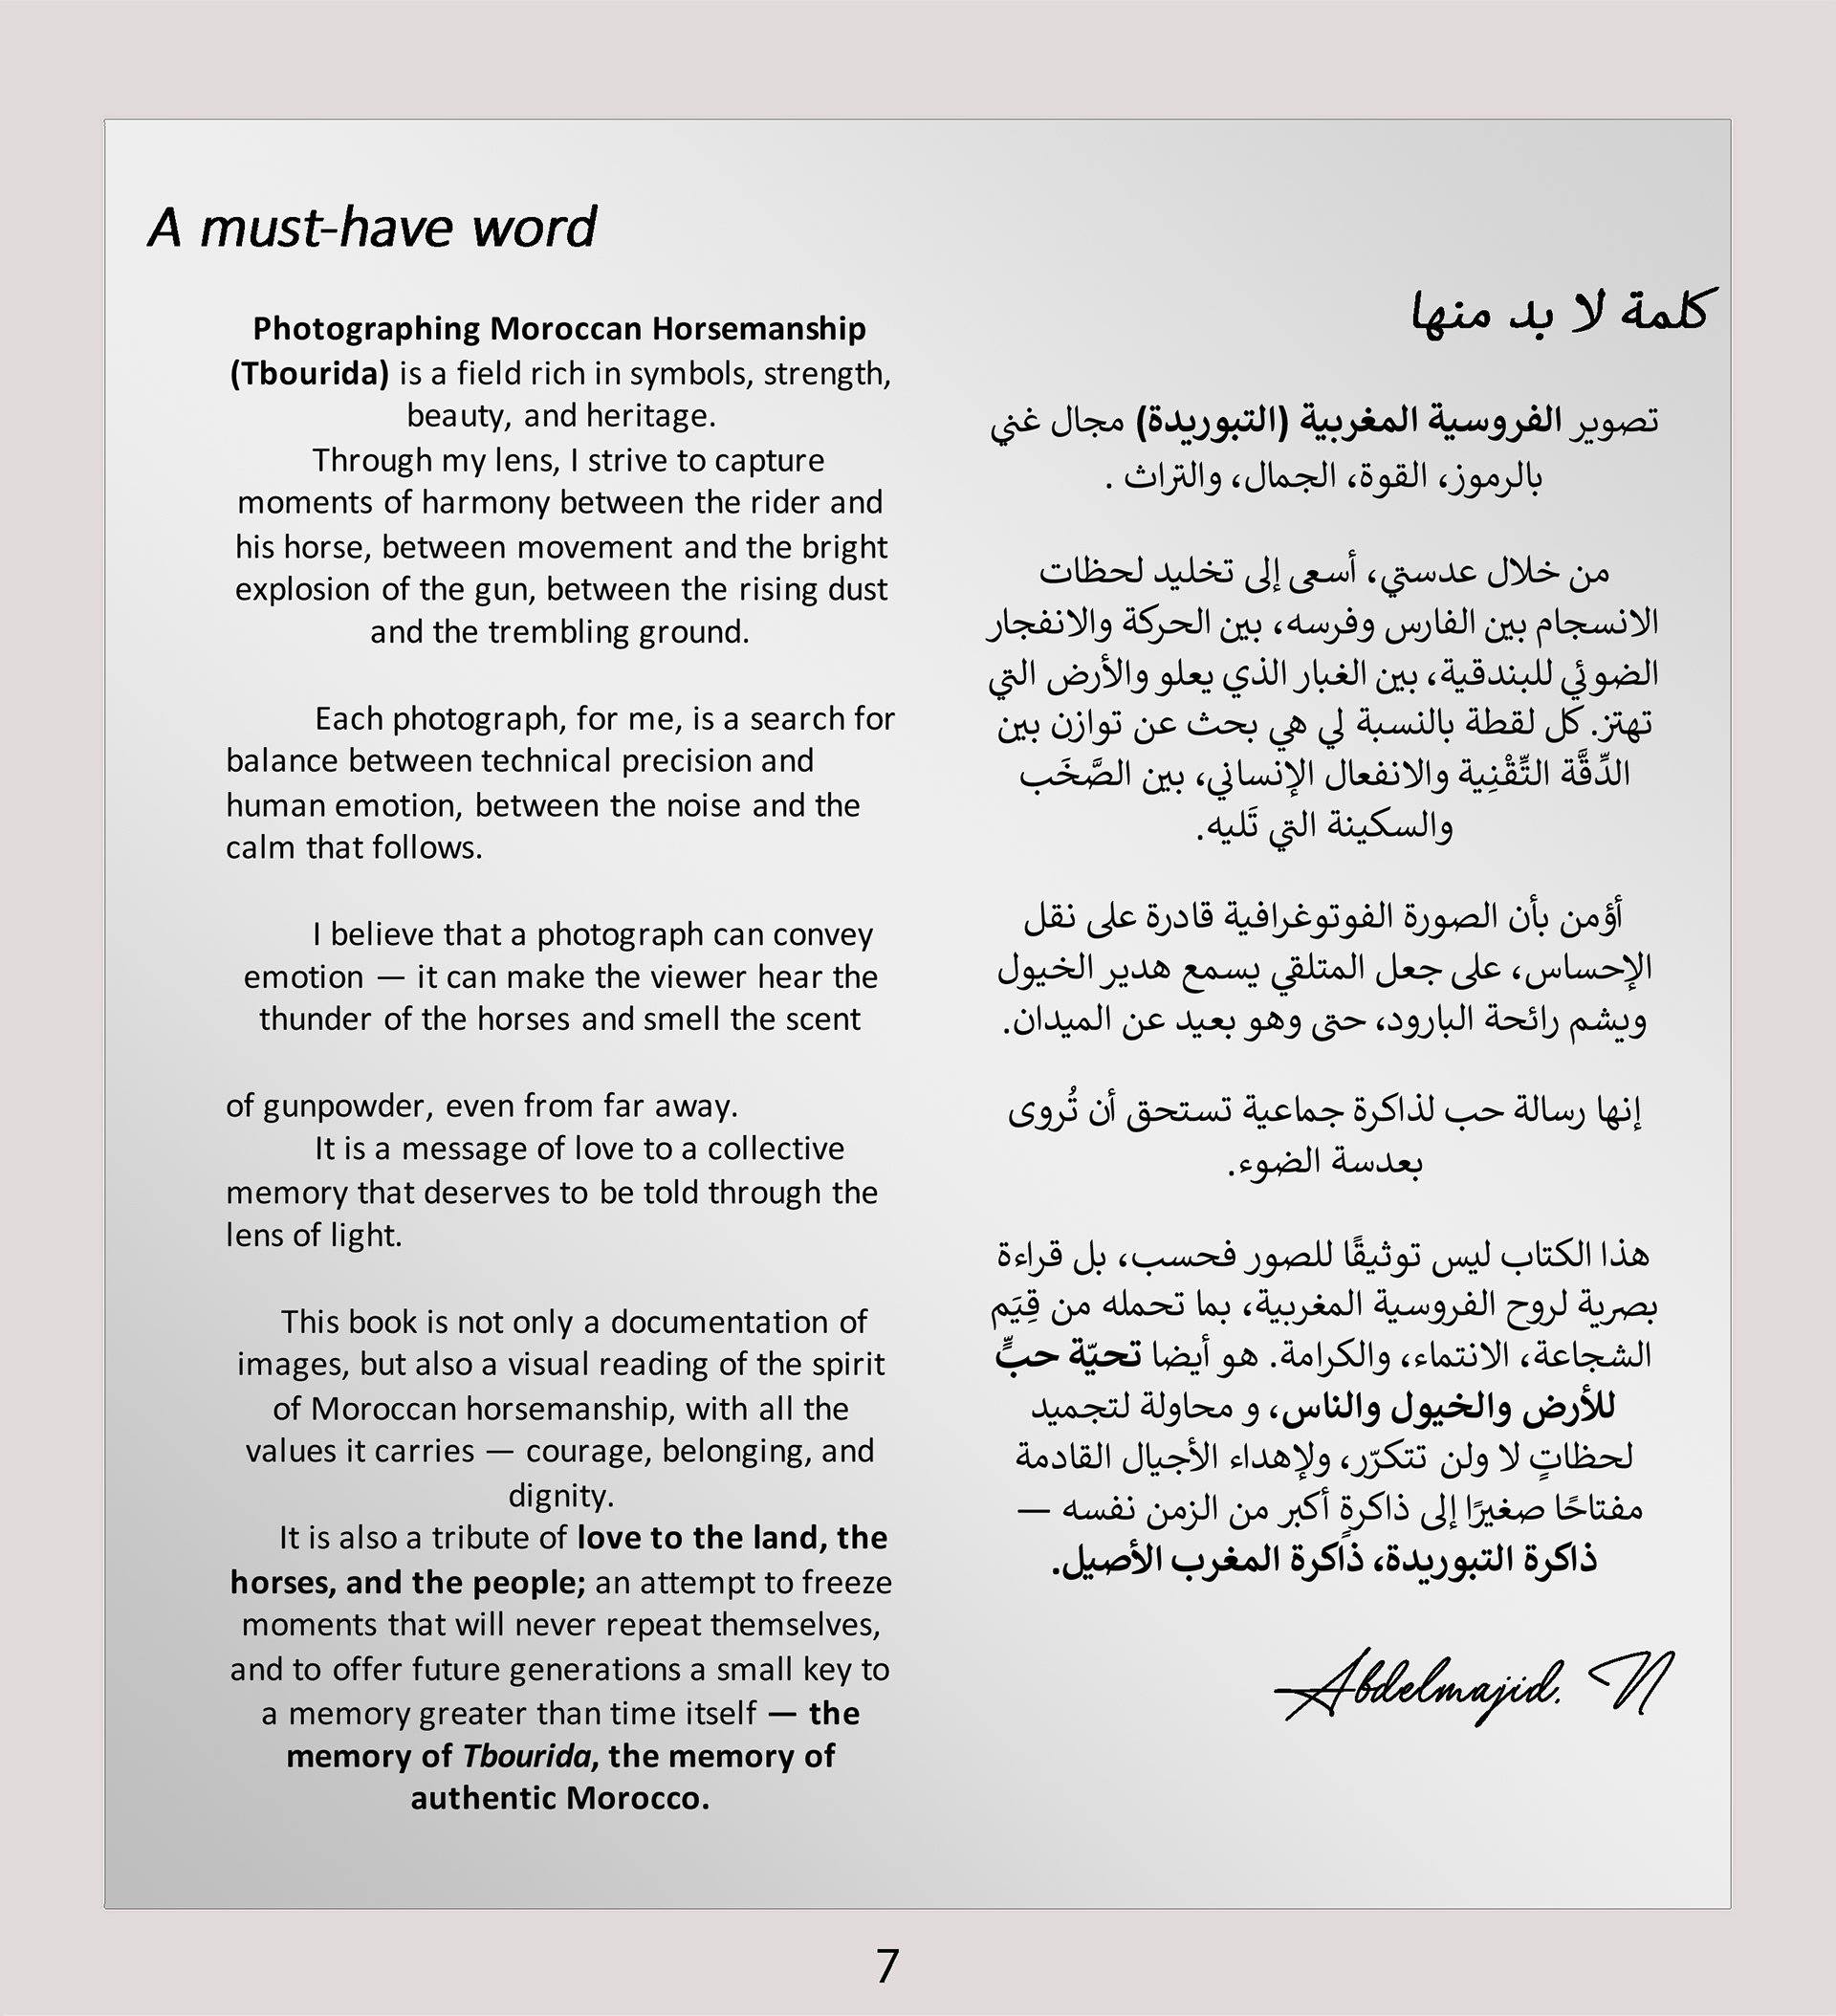 A must-have word
Photographing Moroccan Horsemanship
(Tbourida) is a field rich in symbols, strength,
beauty, and heritage.
Through my lens, I strive to capture
moments of harmony between the rider and
his horse, between movement and the bright
explosion of the gun, between the rising dust
and the trembling ground.
Each photograph, for me, is a search for
balance between technical precision and
human emotion, between the noise and the
calm that follows.
I believe that a photograph can convey
emotion — it can make the viewer hear the
thunder of the horses and smell the scent
of gunpowder, even from far away.
It is a message of love to a collective
memory that deserves to be told through the
lens of light.
This book is not only a documentation of
images, but also a visual reading of the spirit
of Moroccan horsemanship, with all the
values it carries — courage, belonging, and
dignity.
It is also a tribute of love to the land, the
horses, and the people; an attempt to freeze
moments that will never repeat themselves,
and to offer future generations a small key to
a memory greater than time itself — the
memory of Tbourida, the memory of
authentic Morocco.
كلمة لا بد منها
تصوير الفروسية المغربية (التبوريدة) مجال غني
بالرموز، القوة، الجمال، والتراث .
من خلال عدستي، أسعى إلى تخليد لحظات
الانسجام بين الفارس وفرسه، بين الحركة والانفجار
الضوئي للبندقية، بين الغبار الذي يعلو والأرض التي
تهتز. كل لقطة بالنسبة لي هي بحث عن توازن بين
الدِّقَّة التِّقْنِية والانفعال الإنساني، بين الصَّخَب
والسكينة التي تَليه.
أؤمن بأن الصورة الفوتوغرافية قادرة على نقل
الإحساس، على جعل المتلقي يسمع هدير الخيول
ويشم رائحة البارود، حتى وهو بعيد عن الميدان.
إنها رسالة حب لذاكرة جماعية تستحق أن تُروى
بعدسة الضوء.
هذا الكتاب ليس توثيقًا للصور فحسب، بل قراءة
بصرية لروح الفروسية المغربية، بما تحمله من قِيَم
الشجاعة، الانتماء، والكرامة. هو أيضا تحيّة حبٍّ
للأرض والخيول والناس، و محاولة لتجميد
لحظاتٍ لا ولن تتكرّر، ولإهداء الأجيال القادمة
مفتاحًا صغيرًا إلى ذاكرةٍ أكبر من الزمن نفسه —
ذاكرة التبوريدة، ذاكرة المغرب الأصيل.
Abdelmajid. N
7